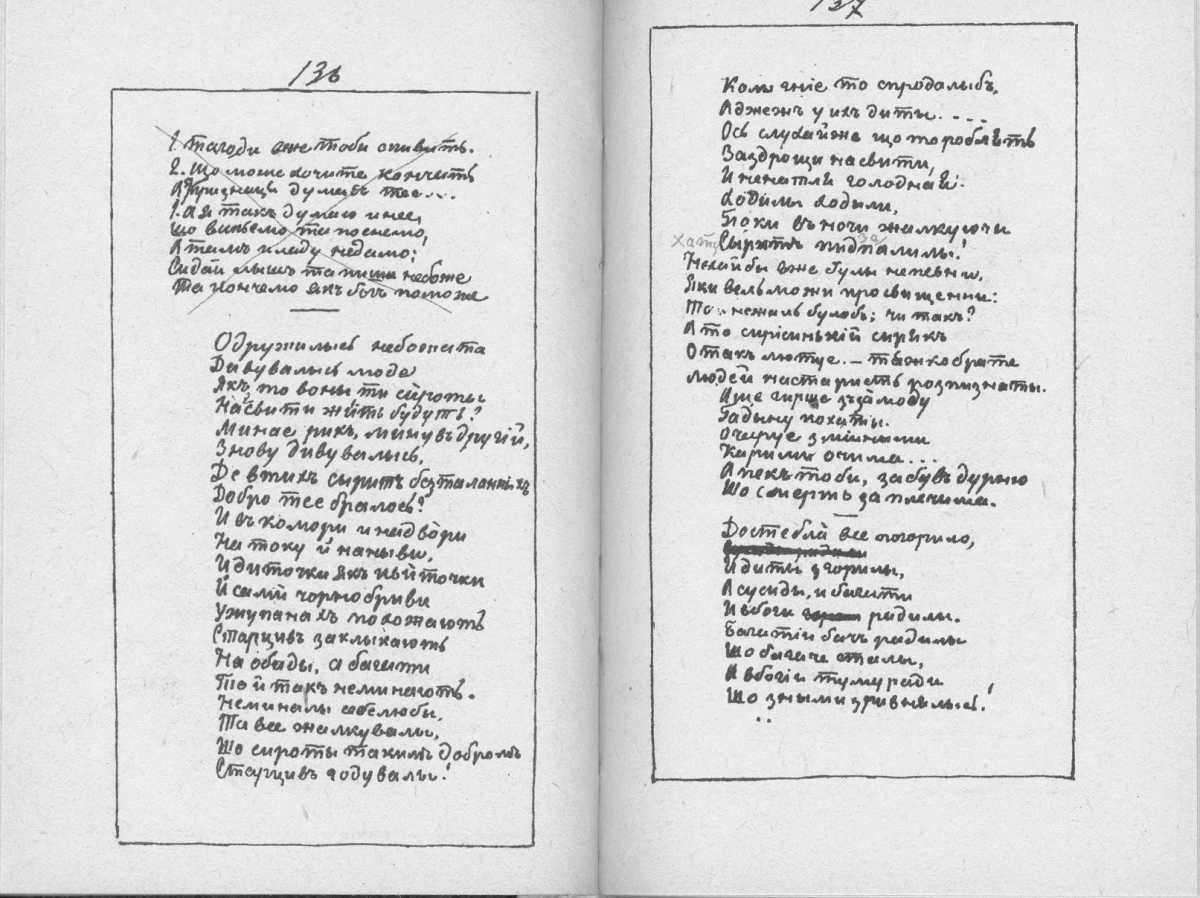 136
1. Тагоди вже тоби спивать.
2. Що може хочите кончить
А Тризнищи думавъ тее...
1. А я такъ думаю инее,
Що випьемо та поспемо,
А тамъ и ладу недамо;
Сидай лышъ та пиши небоже
Та кончемо якъ Богъ поможе
Одружились небожата
Дивувались люде
Якъ то воны ти сироты
На свити жить будуть?
Минае рикъ, минувъ другій,
Знову дивувались,
Де въ тихъ сыритъ безталанныхъ
Добро тее бралось?
И въ комори и надвори
На току й на ныви,
И диточки якъ квиточки
Й сами чорнобриви
Ужупанахъ похожають
Старцивъ заклыкають
На обиды, а багати
То й такъ неминають.
Неминалы себелюби,
Та все жалкувалы,
Що сироты такимъ добромъ
Старцивъ годувалы!
137
Колы гніе то спродалыбъ,
Аджежъ у ихъ диты....
Ось слухайже що то роблять
Заздрощи на свити,
И ненатля голодная.
Ходили ходыли,
Поки въ ночи жалкуючи
Хату
Сыритъ пидпалилы!
за
Нехайбы вже булы непевни,
Яки вельможи просвищенни:
То и нежаль булобъ; чи такъ?
А то сирісинькій сирякъ
Отакъ лютуе. — тяжко брате
Людей на старисть розпизнаты.
А ще гирше зъ замоду
Гадыну кохаты.
Очаруе зміиными
Карими очима...
А пекъ тоби, забувъ дурню
Що смерть за плечима.
До стебла все погорило,
И диты згорилы,
А сусиды, и багати
И вбоги радилы.
Багатіи бачъ радилы
Що багаче сталы,
А вбогіи тому ради
Що зъ ными зривнялысь!